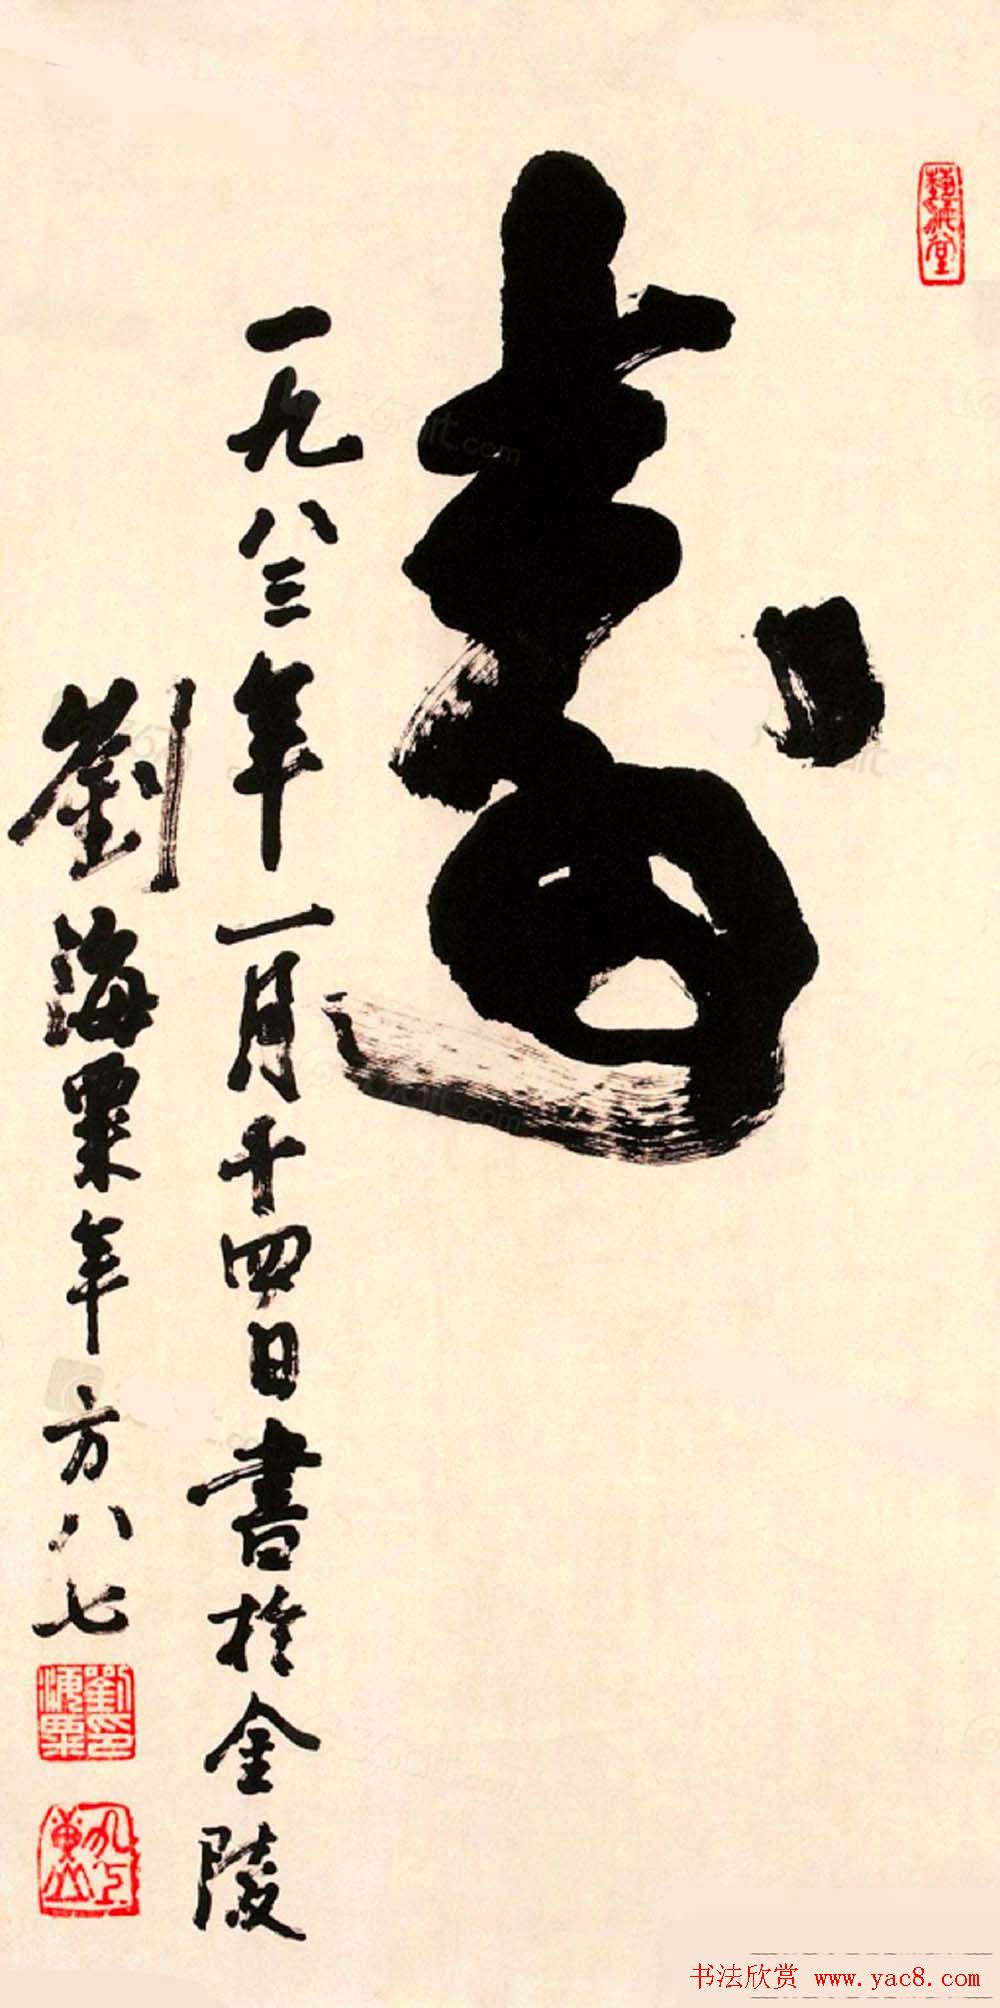 藝海堂
壽
一九八三年一月十四日書於金陵
劉海粟年方八七
劉印海粟
九上黃山
书法欣赏 www.yac8.com